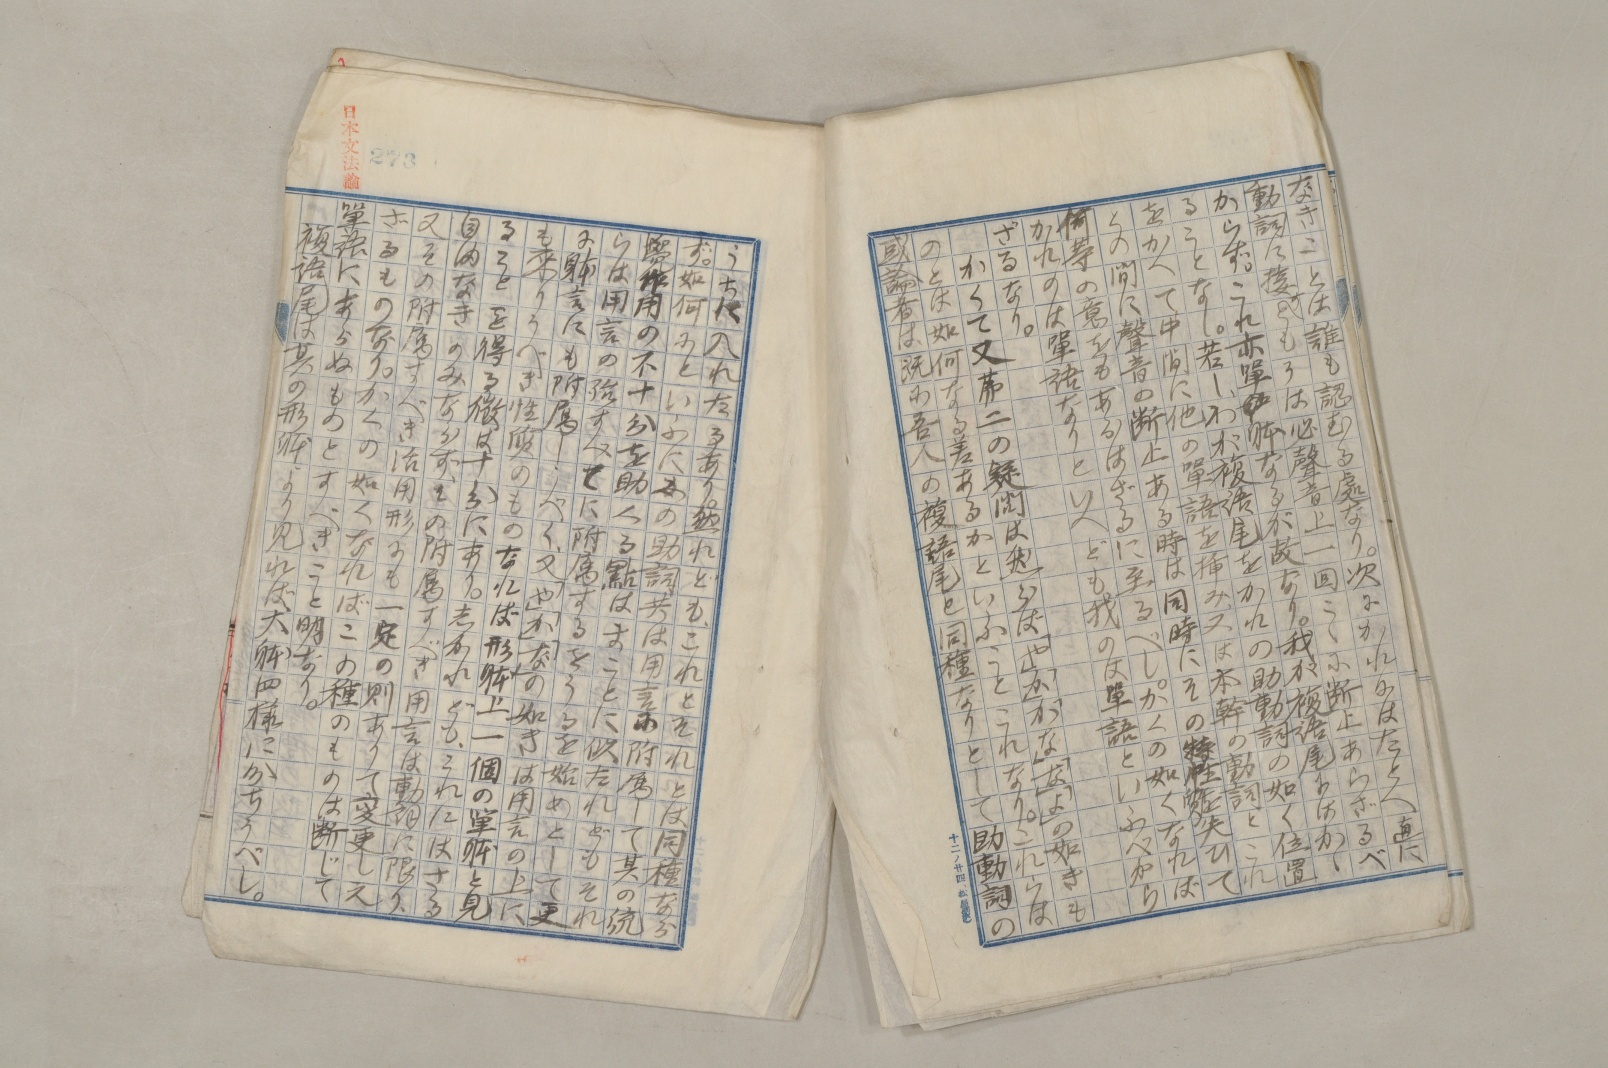 なきことは誰も認むる處なり。次にかれにはたとへ直に
動詞に接せるものは必聲音上一回こゝに断止あらざるべ
からず。これ亦單体なるが故なり。我が複語尾にはかゝ
ることなし。若しわが複語尾をかれの助動詞の如く位置
をかへて中間に他の單語を挿み又は本幹の動詞とこれ
との間に聲音の断止ある時は同時にその特性を失ひて
何等の意をもあらはさざるに至るべし。かくの如くなれば
かれのは單語なりといへども我のは單語といふべから
ざるなり。
かくて又第二の疑問は然らば「や」「か」「がな」「な」「よ」の如きも
のとは如何なる差あるかといふことこれなり。これらは
或論者は既に吾人の複語尾と同種なりとして助動詞の
うちに入れたるあり。然れども、これとそれとは同種なら
ず。如何にといふに の助詞共は用言に附属して其の統
覺作用の不十分を助くる點はまことに似たれどもそれ
らは用言の に附属するをうるを始めとして更
に躰言にも附属しうべく、又「や」「か」「な」の如きは用言の上に
も来りうべき性質のものなれば形躰上一個の單躰と見
ることを得る徴は十分にあり。しかれども、これにはさる
自由なきのみならず、その附属すべき用言は動詞に限り、
又その附属すべき活用形にも一定の則ありて変更しえ
ざるものなり。かくの如くなればこの種のものは断じて
單語にあらぬものとすべきこと明なり。
複語尾は其の形躰より見れば大躰四様にわかちうべし。
日本文法論
273